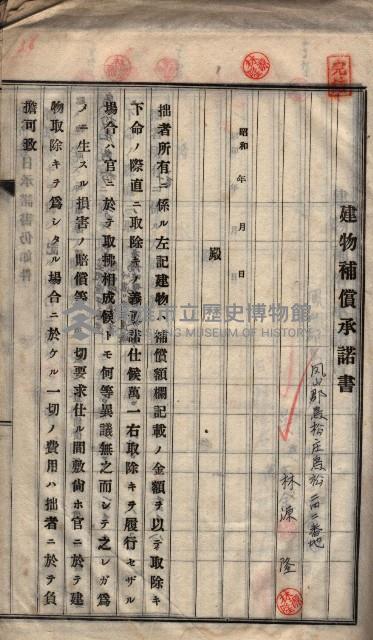 建物補償承諾書
鳳山郡鳥松庄鳥松二四二番地
林源隆
殿
昭和年月日
拙者所有ニ係ル左記建物ハ補償額欄記載ノ金額ヲ以テ取除キ
下命ノ際直ニ取除キノ義承諾仕候萬一右取除キヲ履行セザル
場合ハ官ニ於テ取拂相成候トモ何等異議無之而シテ之レガ為
メニ生スル損害ノ賠償等一切要求仕ル間敷尚ホ官ニ於テ建
物取除キヲ為シタル場合ニ於ケル一切ノ費用ハ拙者ニ於テ負
擔可致
高雄市立歷史博物館
KAOHSIUNG MUSEUM OF HISTORY